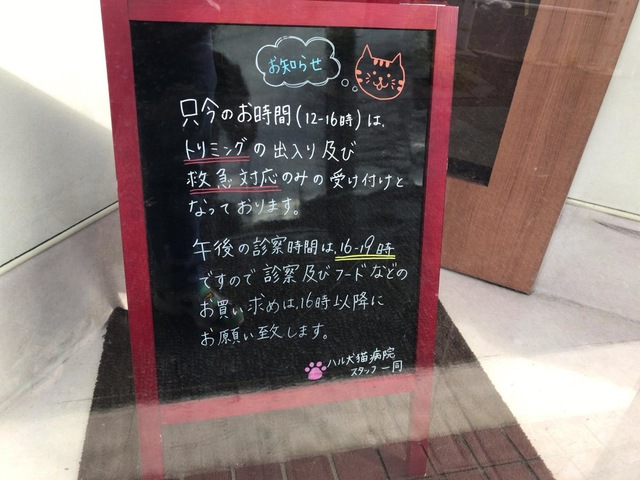 お知らせ
只今のお時間(12-16時)は、
トリミングの出入り及び
救急対応のみの受け付けと
なっております。
午後の診察時間は、16-19時
ですので診察及びフードなどの
お買い求めは、16時以降に
お願い致します。
ハル犬猫病院
スタッフ一同